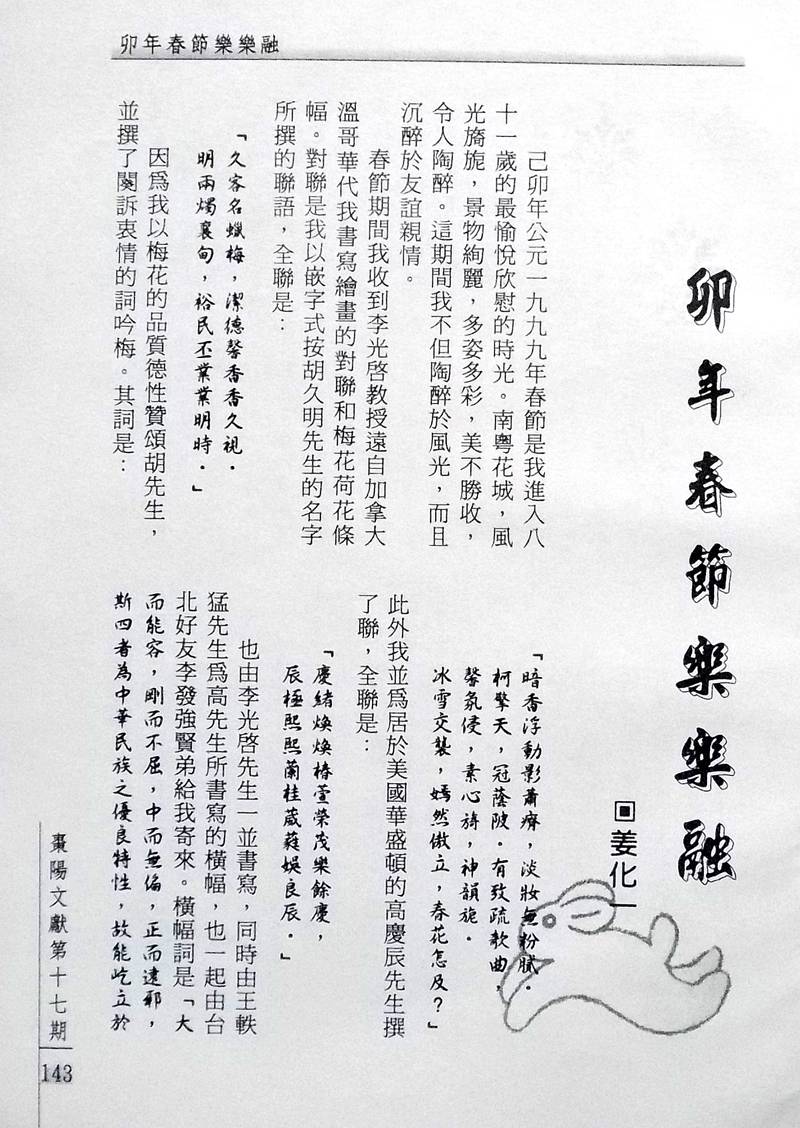 卯年春節樂樂融
卯年春節樂樂融
▣姜化一
己卯年公元一九九九年春節是我進入八
十一歲的最愉悅欣慰的時光。南粵花城，風
光旖旎，景物絢麗，多姿多彩，美不勝收，
令人陶醉。這期間我不但陶醉於風光，而且
沉醉於友誼親情。
春節期間我收到李光啓教授遠自加拿大
溫哥華代我書寫繪畫的對聯和梅花荷花條
幅。對聯是我以嵌字式按胡久明先生的名字
所撰的聯語，全聯是：
「久客名蠟梅，潔德馨香香久視．
明兩燭襄甸，裕民丕業業明時．」
因爲我以梅花的品質德性贊頌胡先生，
並撰了闋訴衷情的詞吟梅。其詞是：
「暗香浮動影蕭疏，淡妝無粉膩．
柯擎天，冠蔭陂．有致疏歌曲，
馨氛侵，素心旖，神韻旎．
冰雪交襲，嫣然傲立，春花怎及？」
此外我並爲居於美國華盛頓的高慶辰先生撰
了聯，全聯是：
「慶緒煥煥椿萱榮茂樂餘慶，
辰極熙熙蘭桂葳蕤娛良辰．」
也由李光啓先生一並書寫，同時由王軼
猛先生爲高先生所書寫的橫幅，也一起由台
北好友李發強賢弟給我寄來。橫幅詞是「大
而能容，剛而不屈，中而無偏，正而遠邪，
斯四者為中華民族之優良特性，故能屹立於
棗陽文獻第十七期
143